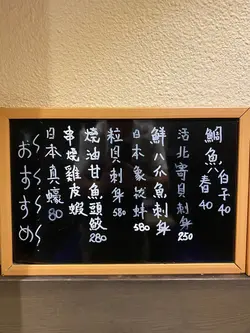 鯛魚春 40
白子 40
活北寄貝刺身 250
鮮八爪魚刺身
日本象拔蚌 580
粒貝刺身 580
燒油甘魚頭鮫 280
串燒雞皮蝦
日本真蠔 80
おすすめ